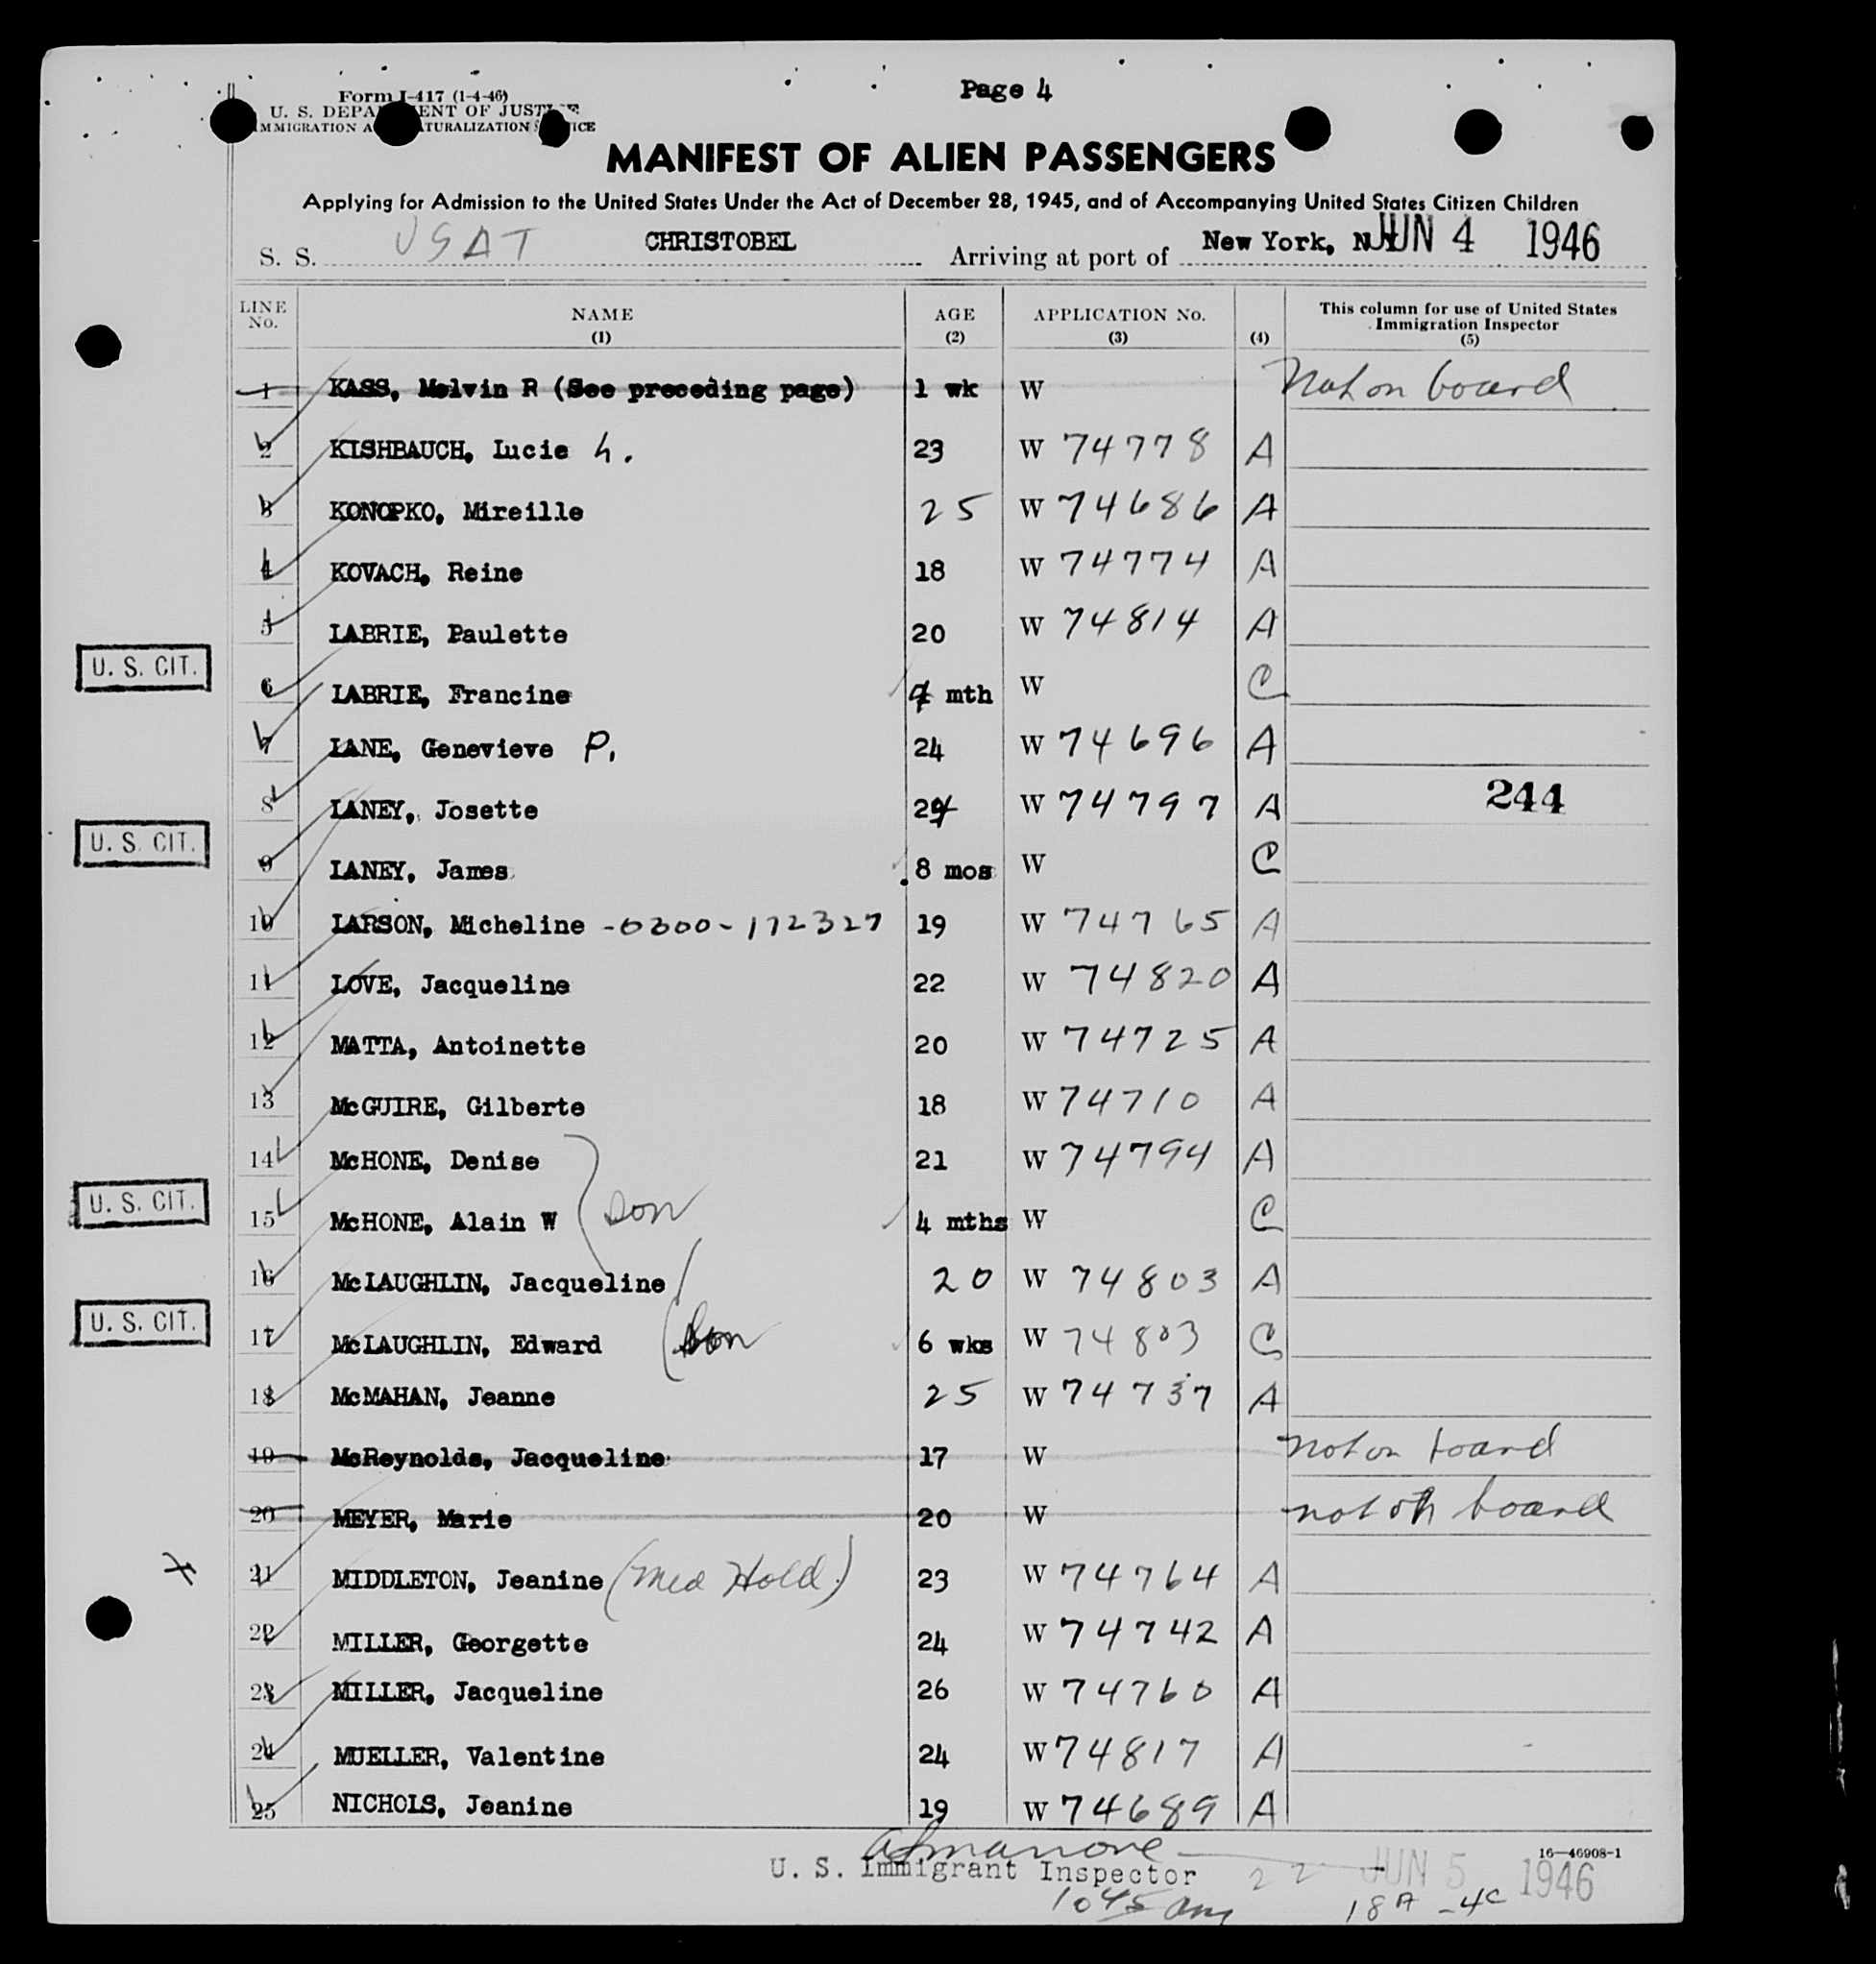 Page 4
Form I-417 (1-4-46)
U. S. DEPARTMENT OF JUSTICE
IMMIGRATION AND NATURALIZATION SERVICE
MANIFEST OF ALIEN PASSENGERS
Applying for Admission to the United States Under the Act of December 28, 1945, and of Accompanying United States Citizen Children
S. S. USAT CHRISTOBEL Arriving at port of New York, N.Y. JUN 4 1946
LINE No. NAME (1) AGE (2) APPLICATION No. (3) (4) This column for use of United States Immigration Inspector (5)
1 KASS, Melvin R (See preceding page) 1 wk W Not on board
2 KISHBAUCH, Lucie h. 23 W 74778 A
3 KONOPKO, Mireille 25 W 74686 A
4 KOVACH, Reine 18 W 74774 A
5 LABRIE, Paulette 20 W 74814 A
U. S. CIT. 6 LABRIE, Francine mth W C
7 LANE, Genevieve P. 24 W 74696 A
8 LANEY, Josette 24 W 74797 A 244
U. S. CIT. 9 LANEY, James 8 mos W C
10 LARSON, Micheline -0300-172327 19 W 74765 A
11 LOVE, Jacqueline 22 W 74820 A
12 MATTA, Antoinette 20 W 74725 A
13 McGUIRE, Gilberte 18 W 74710 A
14 McHONE, Denise 21 W 74794 A
U. S. CIT. 15 McHONE, Alain W son 4 mths W C
16 McLAUGHLIN, Jacqueline 20 W 74803 A
U. S. CIT. 17 McLAUGHLIN, Edward son 6 wks W 74803 C
18 McMAHAN, Jeanne 25 W 74737 A
19 McReynolds, Jacqueline 17 W not on board
20 MEYER, Marie 20 W not on board
21 MIDDLETON, Jeanine (Med Hold) 23 W 74764 A
22 MILLER, Georgette 24 W 74742 A
23 MILLER, Jacqueline 26 W 74760 A
24 MUELLER, Valentine 24 W 74817 A
25 NICHOLS, Jeanine 19 W 74689 A
16—46908-1
U. S. Immigrant Inspector 22 JUN 5 1946
1045 am 18A - 4C